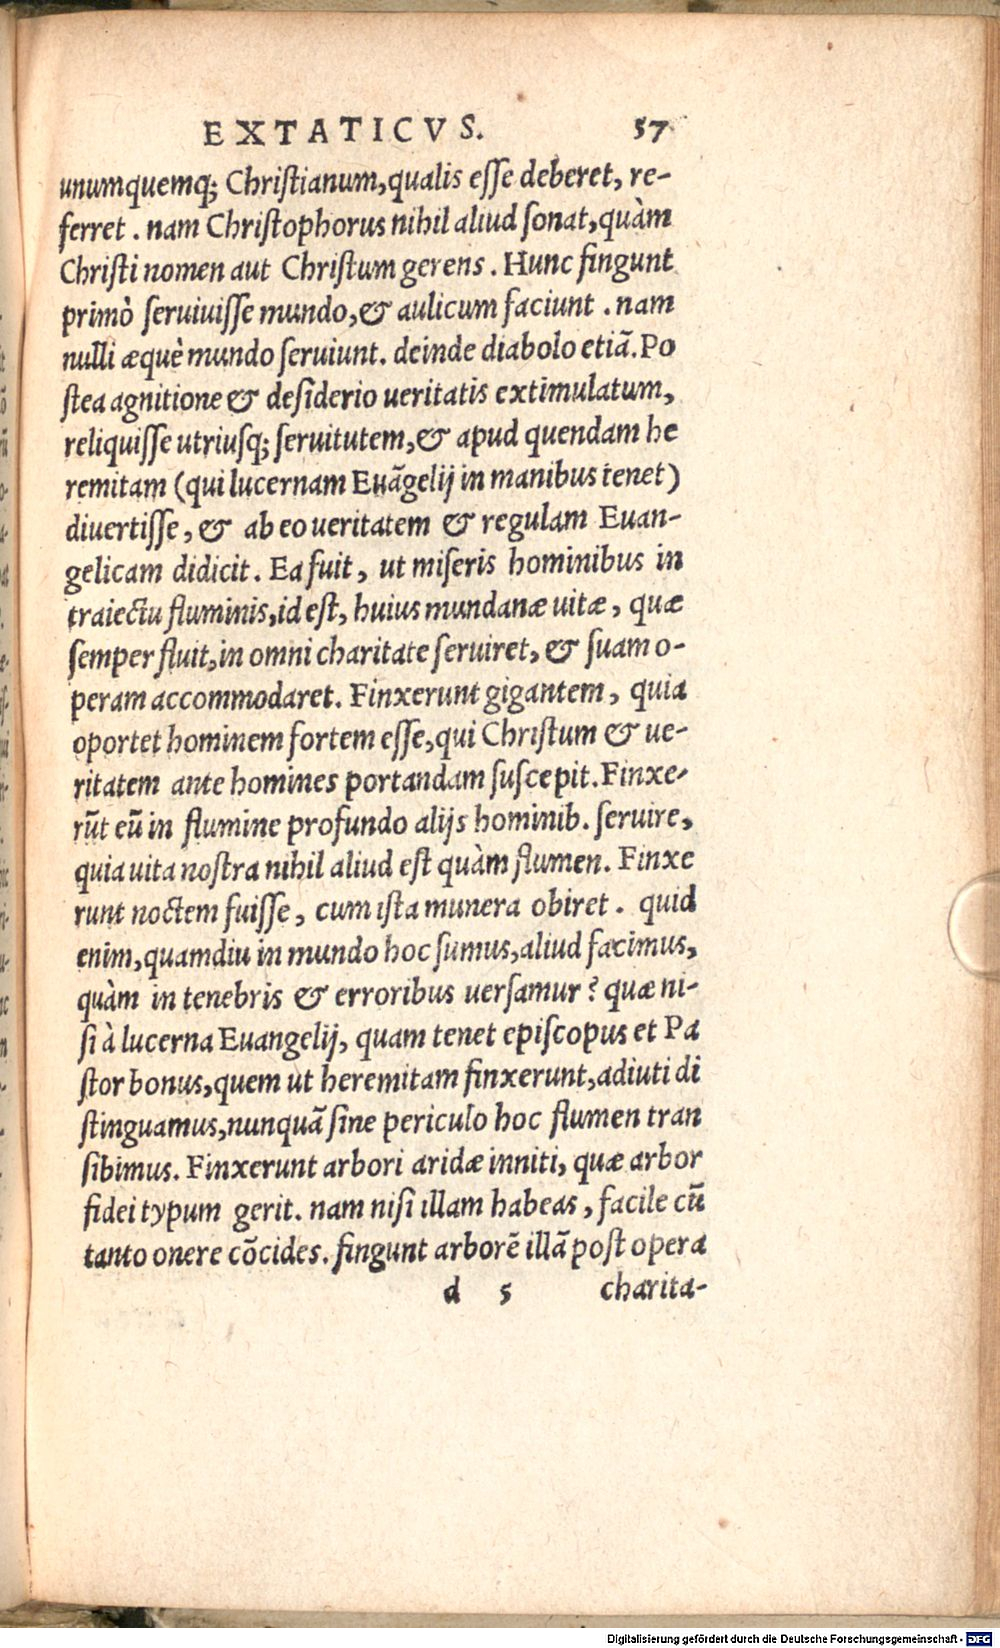 EXTATICVS. 57
unumquemq; Chriſtianum,qualis eſſe deberet, re-
ferret . nam Chriſtophorus nihil aliud ſonat,quàm
Chriſti nomen aut Chriſtum gerens . Hunc fingunt
primò ſeruiuiſſe mundo,& aulicum faciunt . nam
nulli æquè mundo ſeruiunt. deinde diabolo etiā.Po
ſtea agnitione & deſiderio ueritatis extimulatum,
reliquiſſe utriuſq; ſeruitutem,& apud quendam he
remitam (qui lucernam Euāgelij in manibus tenet)
diuertiſſe, & ab eo ueritatem & regulam Euan-
gelicam didicit. Ea fuit, ut miſeris hominibus in
traiectu fluminis,id eſt, huius mundanæ uitæ, quæ
ſemper fluit,in omni charitate ſeruiret, & ſuam o-
peram accommodaret. Finxerunt gigantem, quia
oportet hominem fortem eſſe,qui Chriſtum & ue-
ritatem ante homines portandam ſuſcepit.Finxe-
rūt eū in flumine profundo alijs hominib. ſeruire,
quia uita noſtra nihil aliud eſt quàm flumen. Finxe
runt noctem fuiſſe, cum iſta munera obiret. quid
enim,quamdiu in mundo hoc ſumus,aliud facimus,
quàm in tenebris & erroribus uerſamur? quæ ni-
ſi à lucerna Euangelij, quam tenet epiſcopus et Pa
ſtor bonus,quem ut heremitam finxerunt,adiuti di
ſtinguamus,nunquā ſine periculo hoc flumen tran
ſibimus. Finxerunt arbori aridæ inniti, quæ arbor
fidei typum gerit. nam niſi illam habeas, facile cū
tanto onere cōcides. fingunt arborē illā poſt opera
d 5 charita-
Digitalisierung gefördert durch die Deutsche Forschungsgemeinschaft - DFG